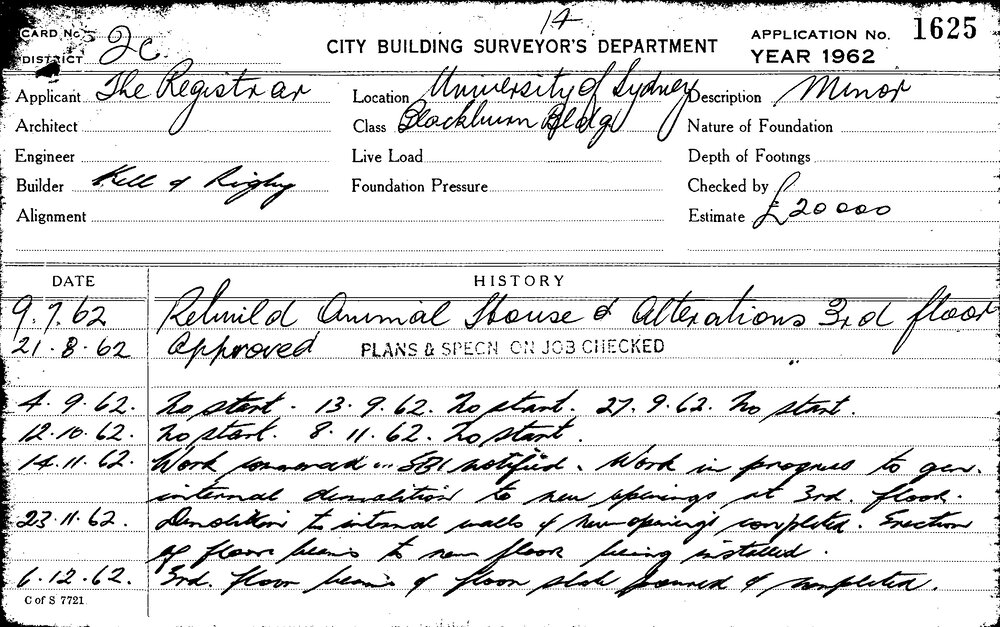 14
CARD No. 2c. CITY BUILDING SURVEYOR'S DEPARTMENT APPLICATION No. 1625
DISTRICT YEAR 1962
Applicant The Registrar Location University of Sydney Description Minor
Architect Class Blackburn Bldg Nature of Foundation
Engineer Live Load Depth of Footings
Builder Kell & Rigby Foundation Pressure Checked by
Alignment Estimate £20000
DATE HISTORY
9.7.62 Rebuild Animal House & Alterations 3rd floor
21.8.62 Approved PLANS & SPECN ON JOB CHECKED
4.9.62. No start. 13.9.62. No start. 27.9.62. No start.
12.10.62. No start. 8.11.62. No start.
14.11.62. Work commenced SBI notified. Work in progress to gen.
internal demolition to new openings at 3rd. floor.
23.11.62. Demolition to internal walls & new openings completed. Erection
of floor beams to new floor being installed.
6.12.62. 3rd. floor beams & floor slab poured & completed.
C of S 7721